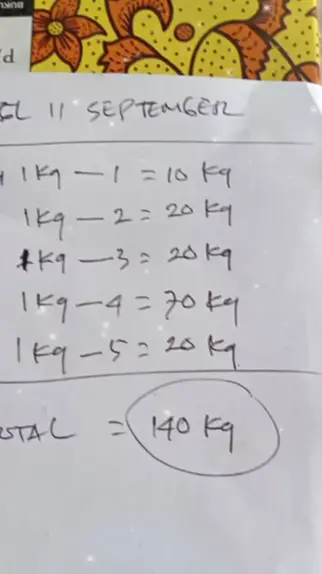 GL 11 SEPTEMBER
1 Kg - 1 = 10 Kg
1 Kg - 2 = 20 Kg
1 Kg - 3 = 20 Kg
1 Kg - 4 = 70 Kg
1 Kg - 5 = 20 Kg
OTAL = 140 Kg